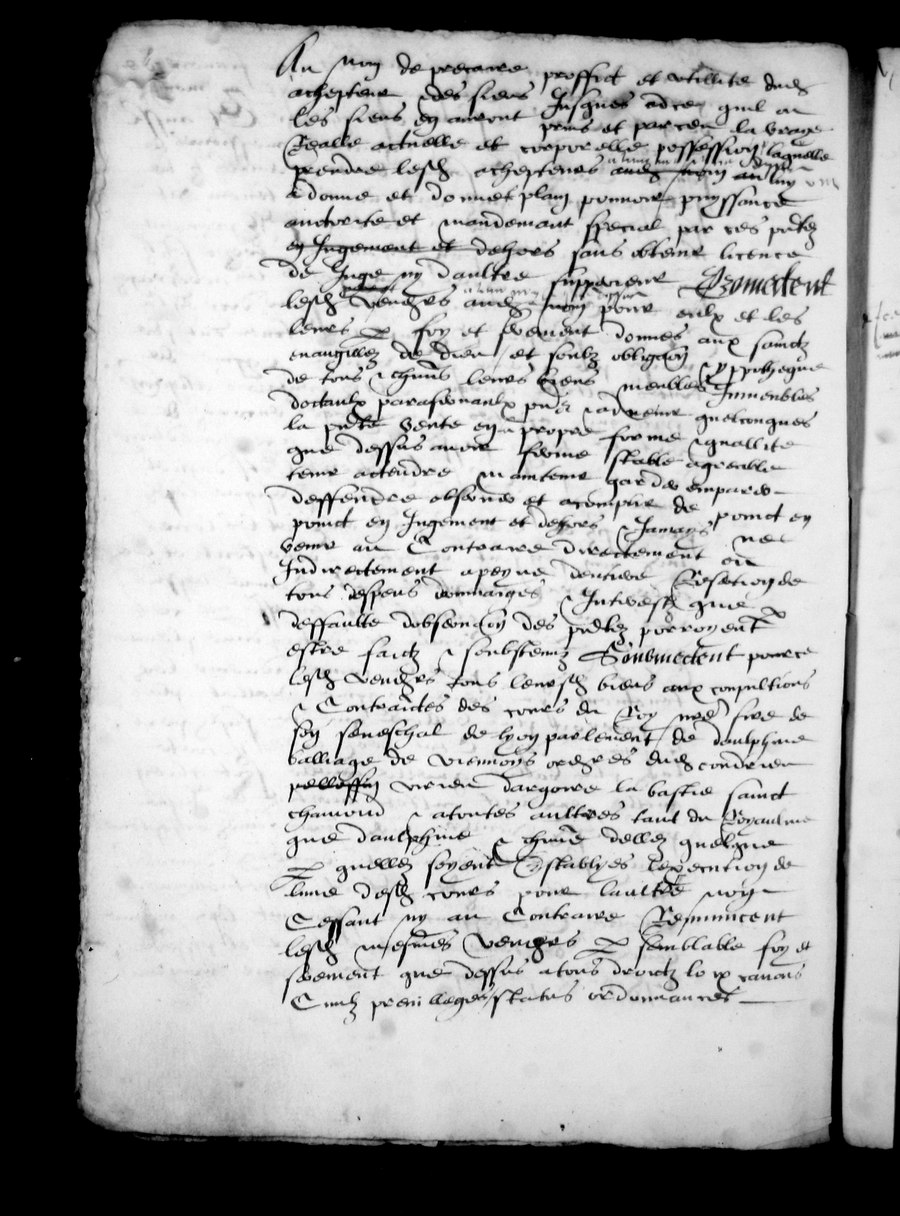 Au nom de precaire proffict et utillite dudz
achepteur & des siens Jusques ad ce quil au
les siens en auront prins et parceu la vraye
Realle actuelle et corporelle possession laquelle
prendre lesdz achepteurs
a donne et donnet plain pouvoir puyssance
auctorite et mandemant special par ces pntes
en Jugement et dehors sans obtenir licence
de Juge ny daultre supperieur Promectent
lesdz vendrs pour eulx et les
leurs p foy et serement donnes aux sainctz
evangilles de dieu et soubz obligaon
de tous & chuns leurs biens meubles Immeubles & yppotheque
doctaulx parafernaulx pns & advenir quelconques
la pnte vente en & propre forme & quallite
que dessus avoir ferme stable agreable
tenir actendre maintenir garder emparer
deffendre observer et acomplir de
poinct en Jugement et dehors & Jamais poinct en
venir au Contraire directement ne
Indirectement a peyne dentiere Restition de ou
tous despens dommaiges & Interestz que p
deffaulte dobservaon des pntes porroyent
estre faictz & soubstenuz Soubmectent pource
lesdz vendrs tous leursdz biens aux conpultions
& Contrainctes des cours du Roy nre sire de
son seneschal de lyon parlement de daulphine
balliage de viennoys ordres dudz condrieu
pellossin virieu dargoire la bastie sainct
chamond & a toutes aultres tant du Royaulme
que daulphine & chune delles quelque
p quelles soyent Establyes lexecution de
lune desdz cours pour laultre non
Cessant ny au Contraire Renuncent
lesdz mesmes vendrs p semblable foy et
serement que dessus a tous droictz loix canons
Civilz previlleges statuts ordonnances